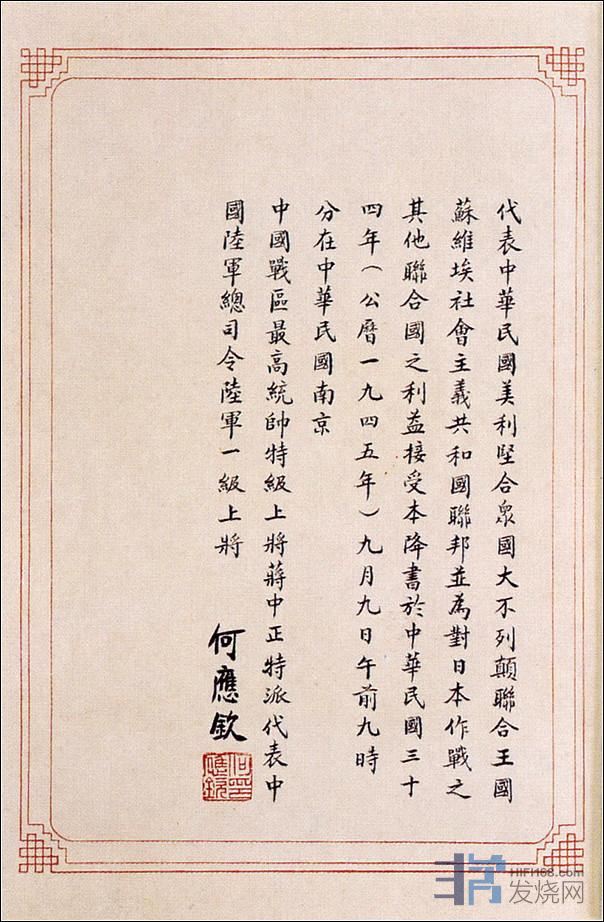 代表中華民國美利堅合衆國大不列顛聯合王國
蘇維埃社會主義共和國聯邦並為對日本作戰之
其他聯合國之利益接受本降書於中華民國三十
四年（公曆一九四五年）九月九日午前九時
分在中華民國南京
中國戰區最高統帥特級上將蔣中正特派代表中
國陸軍總司令陸軍一級上將
何應欽
何應欽印
HIFI168.com
发烧网